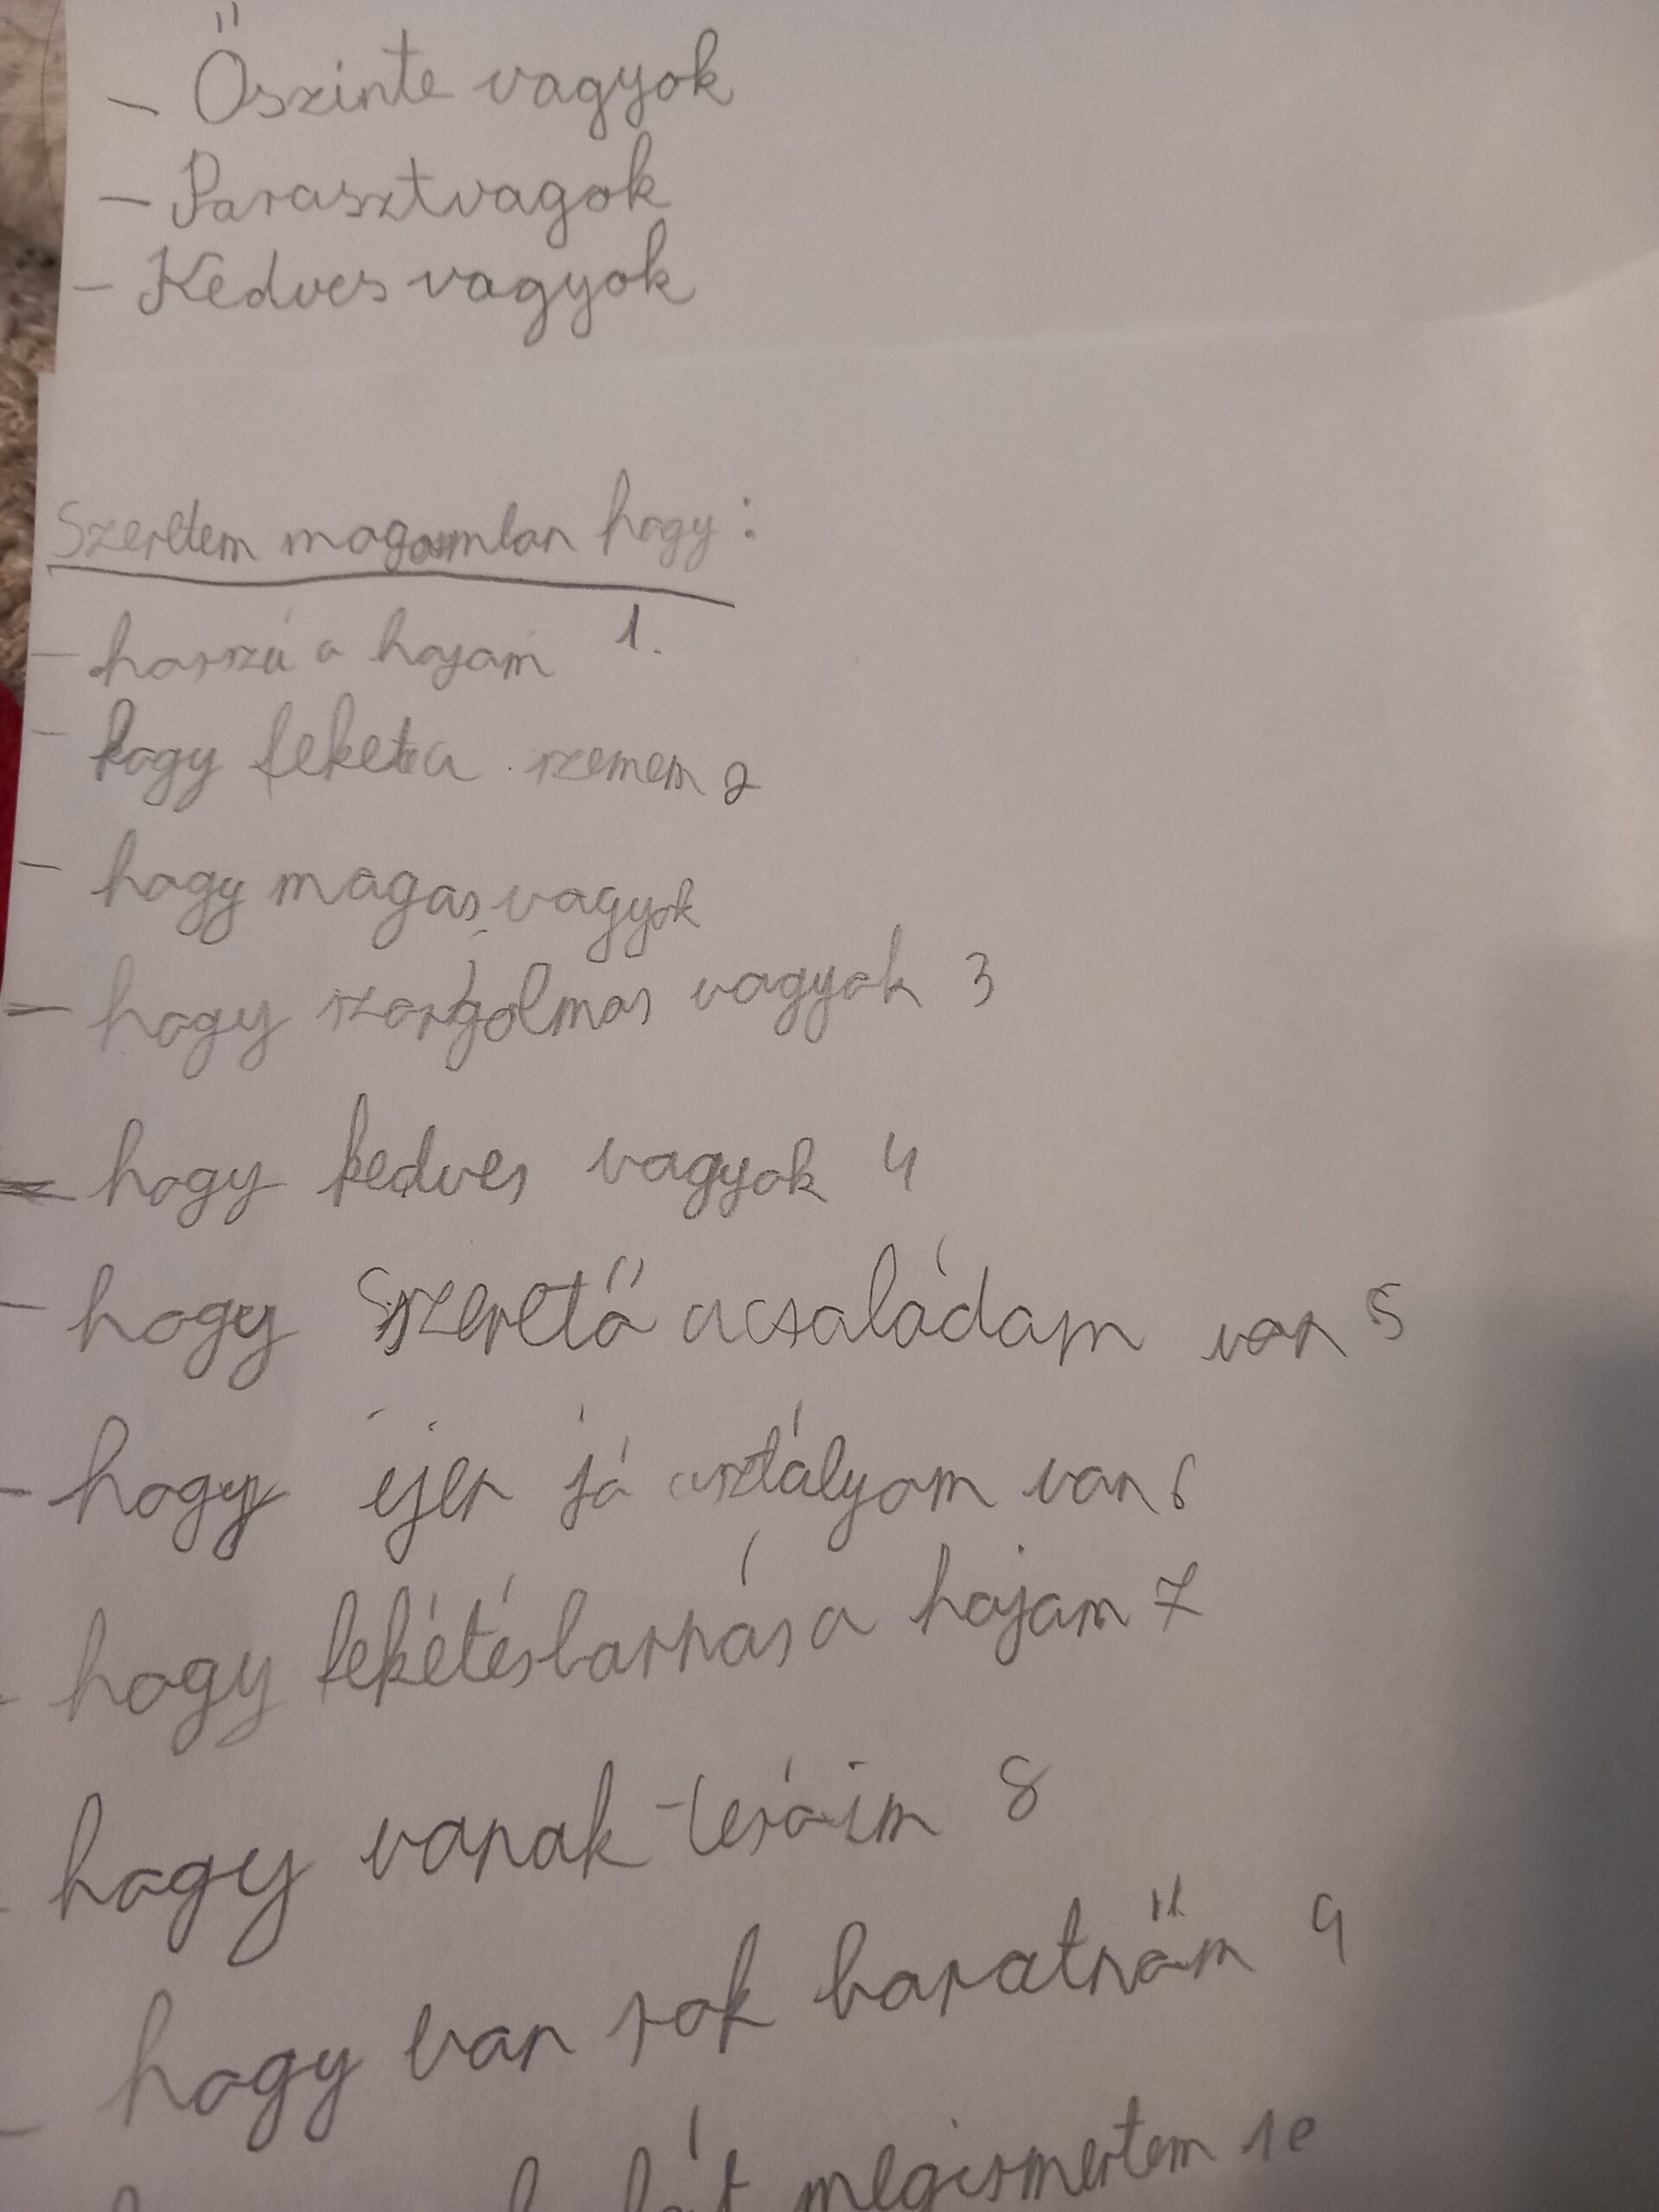 - Őszinte vagyok
- Parasztvagok
- Kedves vagyok
Szeretem magamban hogy:
- hosszú a hajam 1.
- hogy feket a szemem 2
- hogy magas vagyok
- hogy szorgolmas vagyok 3
- hogy kedves vagyok 4
- hogy szerető acsaládam van 5
- hogy ijen jó asztályom van 6
- hogy fekétésbarnás a hajam 7
- hogy vanak tesóim 8
hogy van sok baratnőm 9
megismertem 10